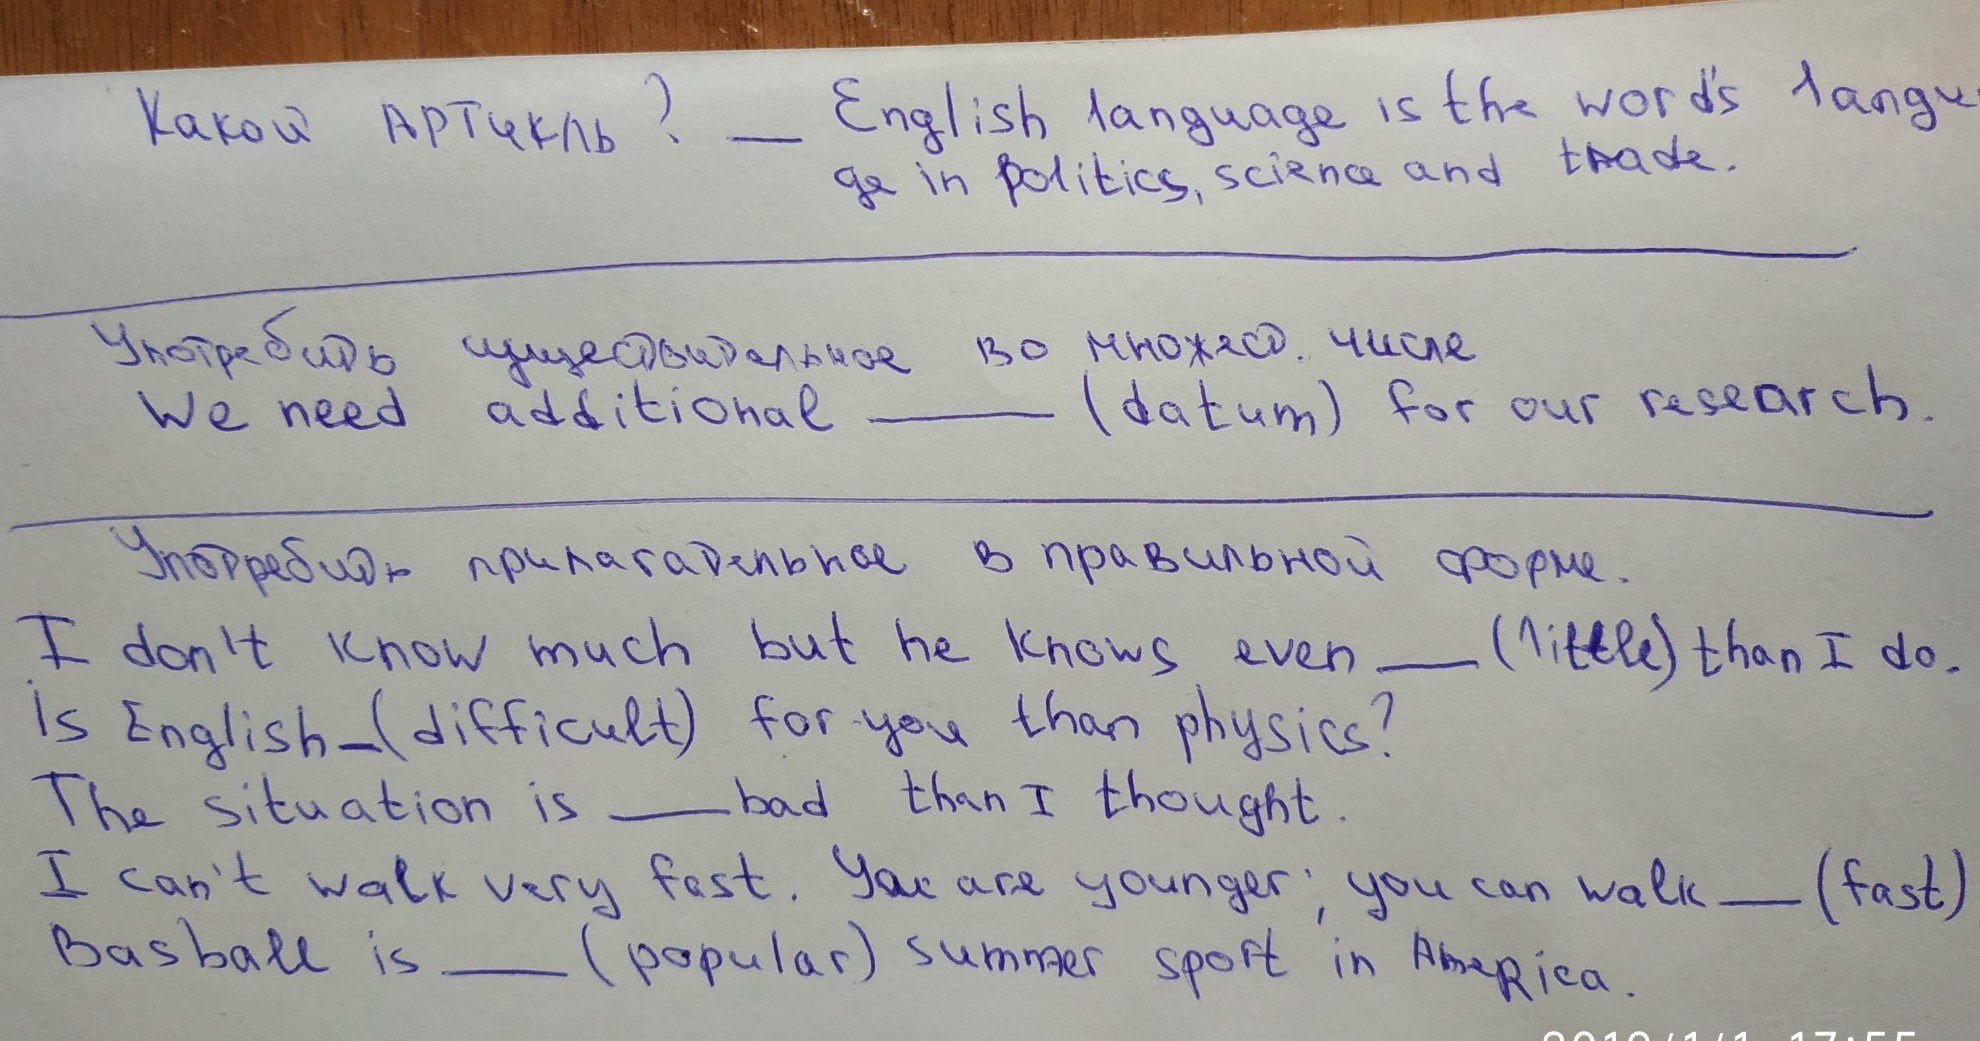 Какой АРТИКЛЬ? __ English language is the word's langua
ge in politics, science and trade.
Употребить существительное во множест. числе
We need additional ____ (datum) for our research.
Употребить прилагательное в правильной форме.
I don't know much but he knows even __ (little) than I do.
is English _ (difficult) for you than physics?
The situation is ___ bad than I thought.
I can't walk very fast. You are younger; you can walk __ (fast)
Basball is ___ (popular) summer sport in America.